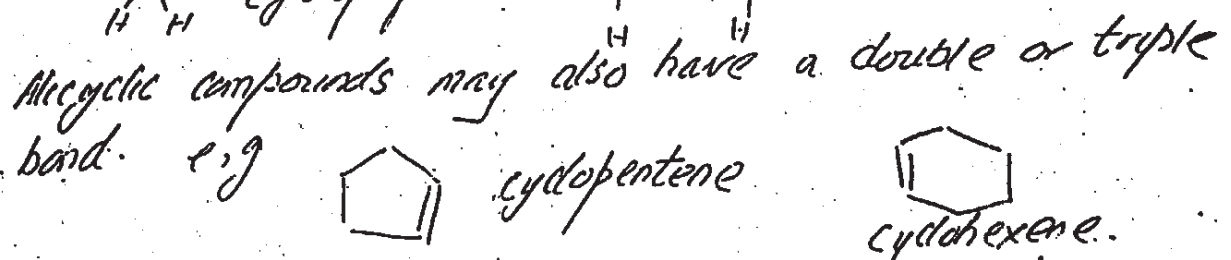 H H
H H
Alicyclic compounds may also have a double or triple
bond. e.g cyclopentene
cyclohexene.